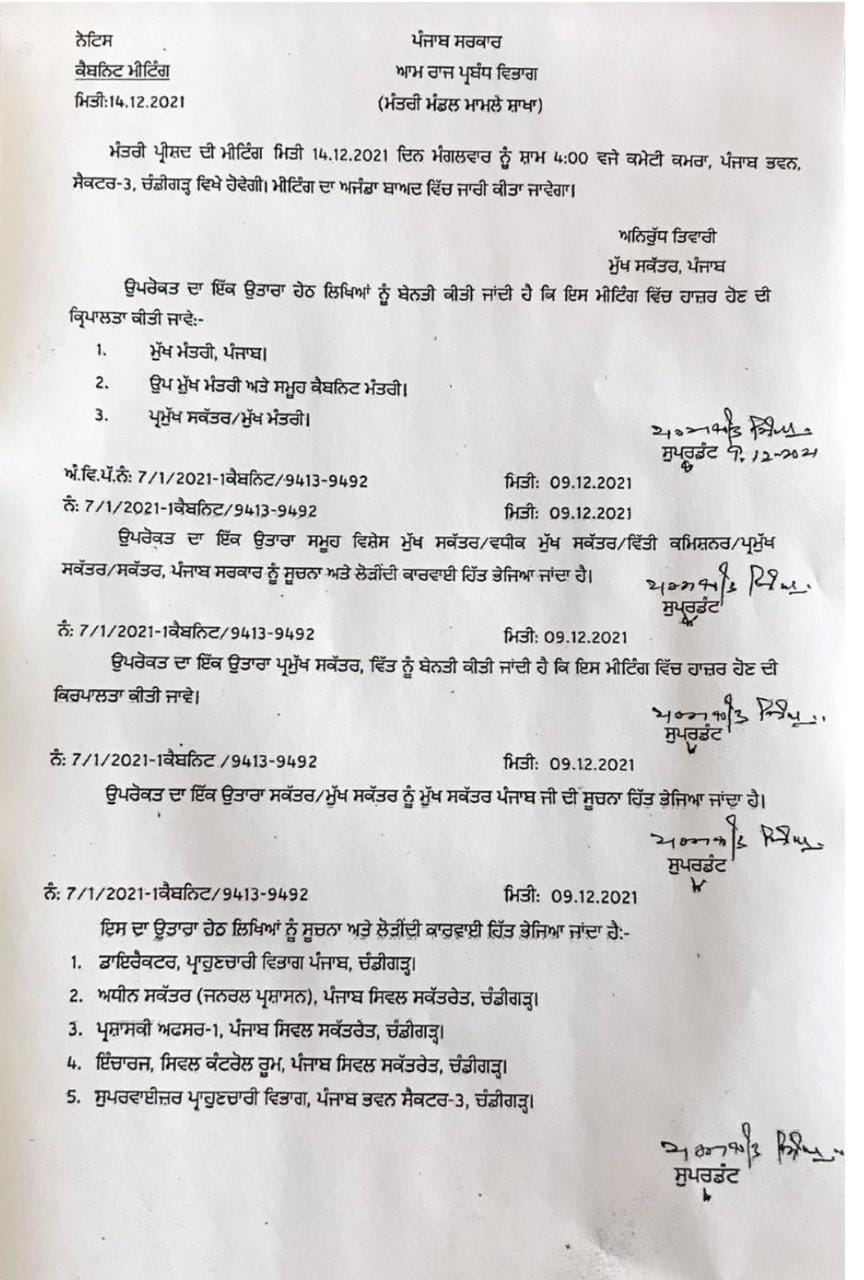 ਨੋਟਿਸ
ਪੰਜਾਬ ਸਰਕਾਰ
ਕੈਬਨਿਟ ਮੀਟਿੰਗ
ਆਮ ਰਾਜ ਪ੍ਰਬੰਧ ਵਿਭਾਗ
ਮਿਤੀ:14.12.2021
(ਮੰਤਰੀ ਮੰਡਲ ਮਾਮਲੇ ਸ਼ਾਖਾ)
ਮੰਤਰੀ ਪ੍ਰੀਸ਼ਦ ਦੀ ਮੀਟਿੰਗ ਮਿਤੀ 14.12.2021 ਦਿਨ ਮੰਗਲਵਾਰ ਨੂੰ ਸ਼ਾਮ 4:00 ਵਜੇ ਕਮੇਟੀ ਕਮਰਾ, ਪੰਜਾਬ ਭਵਨ,
ਸੈਕਟਰ-3, ਚੰਡੀਗੜ੍ਹ ਵਿਖੇ ਹੋਵੇਗੀ। ਮੀਟਿੰਗ ਦਾ ਅਜੰਡਾ ਬਾਅਦ ਵਿੱਚ ਜਾਰੀ ਕੀਤਾ ਜਾਵੇਗਾ।
ਅਨਿਰੁੱਧ ਤਿਵਾਰੀ
ਮੁੱਖ ਸਕੱਤਰ, ਪੰਜਾਬ
ਉਪਰੋਕਤ ਦਾ ਇੱਕ ਉਤਾਰਾ ਹੇਠ ਲਿਖਿਆਂ ਨੂੰ ਬੇਨਤੀ ਕੀਤੀ ਜਾਂਦੀ ਹੈ ਕਿ ਇਸ ਮੀਟਿੰਗ ਵਿੱਚ ਹਾਜ਼ਰ ਹੋਣ ਦੀ
ਕ੍ਰਿਪਾਲਤਾ ਕੀਤੀ ਜਾਵੇ:-
1. ਮੁੱਖ ਮੰਤਰੀ, ਪੰਜਾਬ।
2. ਉਪ ਮੁੱਖ ਮੰਤਰੀ ਅਤੇ ਸਮੂਹ ਕੈਬਨਿਟ ਮੰਤਰੀ।
3. ਪ੍ਰਮੁੱਖ ਸਕੱਤਰ/ਮੁੱਖ ਮੰਤਰੀ।
ਸੁਪਰਡੰਟ 9.12-2021
ਅੰ.ਵਿ.ਪੱ.ਨੰ: 7/1/2021-1ਕੈਬਨਿਟ/9413-9492 ਮਿਤੀ: 09.12.2021
ਨੰ: 7/1/2021-1ਕੈਬਨਿਟ/9413-9492 ਮਿਤੀ: 09.12.2021
ਉਪਰੋਕਤ ਦਾ ਇੱਕ ਉਤਾਰਾ ਸਮੂਹ ਵਿਸ਼ੇਸ ਮੁੱਖ ਸਕੱਤਰ/ਵਧੀਕ ਮੁੱਖ ਸਕੱਤਰ/ਵਿੱਤੀ ਕਮਿਸ਼ਨਰ/ਪ੍ਰਮੁੱਖ
ਸਕੱਤਰ/ਸਕੱਤਰ, ਪੰਜਾਬ ਸਰਕਾਰ ਨੂੰ ਸੂਚਨਾ ਅਤੇ ਲੋੜੀਂਦੀ ਕਾਰਵਾਈ ਹਿੱਤ ਭੇਜਿਆ ਜਾਂਦਾ ਹੈ।
ਸੁਪਰਡੰਟ
ਨੰ: 7/1/2021-1ਕੈਬਨਿਟ/9413-9492 ਮਿਤੀ: 09.12.2021
ਉਪਰੋਕਤ ਦਾ ਇੱਕ ਉਤਾਰਾ ਪ੍ਰਮੁੱਖ ਸਕੱਤਰ, ਵਿੱਤ ਨੂੰ ਬੇਨਤੀ ਕੀਤੀ ਜਾਂਦੀ ਹੈ ਕਿ ਇਸ ਮੀਟਿੰਗ ਵਿੱਚ ਹਾਜ਼ਰ ਹੋਣ ਦੀ
ਕਿਰਪਾਲਤਾ ਕੀਤੀ ਜਾਵੇ।
ਸੁਪਰਡੰਟ
ਨੰ: 7/1/2021-1ਕੈਬਨਿਟ /9413-9492 ਮਿਤੀ: 09.12.2021
ਉਪਰੋਕਤ ਦਾ ਇੱਕ ਉਤਾਰਾ ਸਕੱਤਰ/ਮੁੱਖ ਸਕੱਤਰ ਨੂੰ ਮੁੱਖ ਸਕੱਤਰ ਪੰਜਾਬ ਜੀ ਦੀ ਸੂਚਨਾ ਹਿੱਤ ਭੇਜਿਆ ਜਾਂਦਾ ਹੈ।
ਸੁਪਰਡੰਟ
ਨੰ: 7/1/2021-1ਕੈਬਨਿਟ/9413-9492 ਮਿਤੀ: 09.12.2021
ਇਸ ਦਾ ਉਤਾਰਾ ਹੇਠ ਲਿਖਿਆਂ ਨੂੰ ਸੂਚਨਾ ਅਤੇ ਲੋੜੀਂਦੀ ਕਾਰਵਾਈ ਹਿੱਤ ਭੇਜਿਆ ਜਾਂਦਾ ਹੈ:-
1. ਡਾਇਰੈਕਟਰ, ਪ੍ਰਾਹੁਣਚਾਰੀ ਵਿਭਾਗ ਪੰਜਾਬ, ਚੰਡੀਗੜ੍ਹ।
2. ਅਧੀਨ ਸਕੱਤਰ (ਜਨਰਲ ਪ੍ਰਸ਼ਾਸਨ), ਪੰਜਾਬ ਸਿਵਲ ਸਕੱਤਰੇਤ, ਚੰਡੀਗੜ੍ਹ।
3. ਪ੍ਰਸ਼ਾਸਕੀ ਅਫਸਰ-1, ਪੰਜਾਬ ਸਿਵਲ ਸਕੱਤਰੇਤ, ਚੰਡੀਗੜ੍ਹ।
4. ਇੰਚਾਰਜ, ਸਿਵਲ ਕੰਟਰੋਲ ਰੂਮ, ਪੰਜਾਬ ਸਿਵਲ ਸਕੱਤਰੇਤ, ਚੰਡੀਗੜ੍ਹ।
5. ਸੁਪਰਵਾਈਜ਼ਰ ਪ੍ਰਾਹੁਣਚਾਰੀ ਵਿਭਾਗ, ਪੰਜਾਬ ਭਵਨ ਸੈਕਟਰ-3, ਚੰਡੀਗੜ੍ਹ।
ਸੁਪਰਡੰਟ